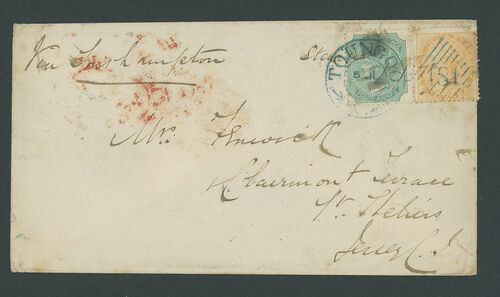 Via Southampton
TOUNGOO
Mrs Fenwick
Clairmont Terrace
St. Heliers
Jersey C. I